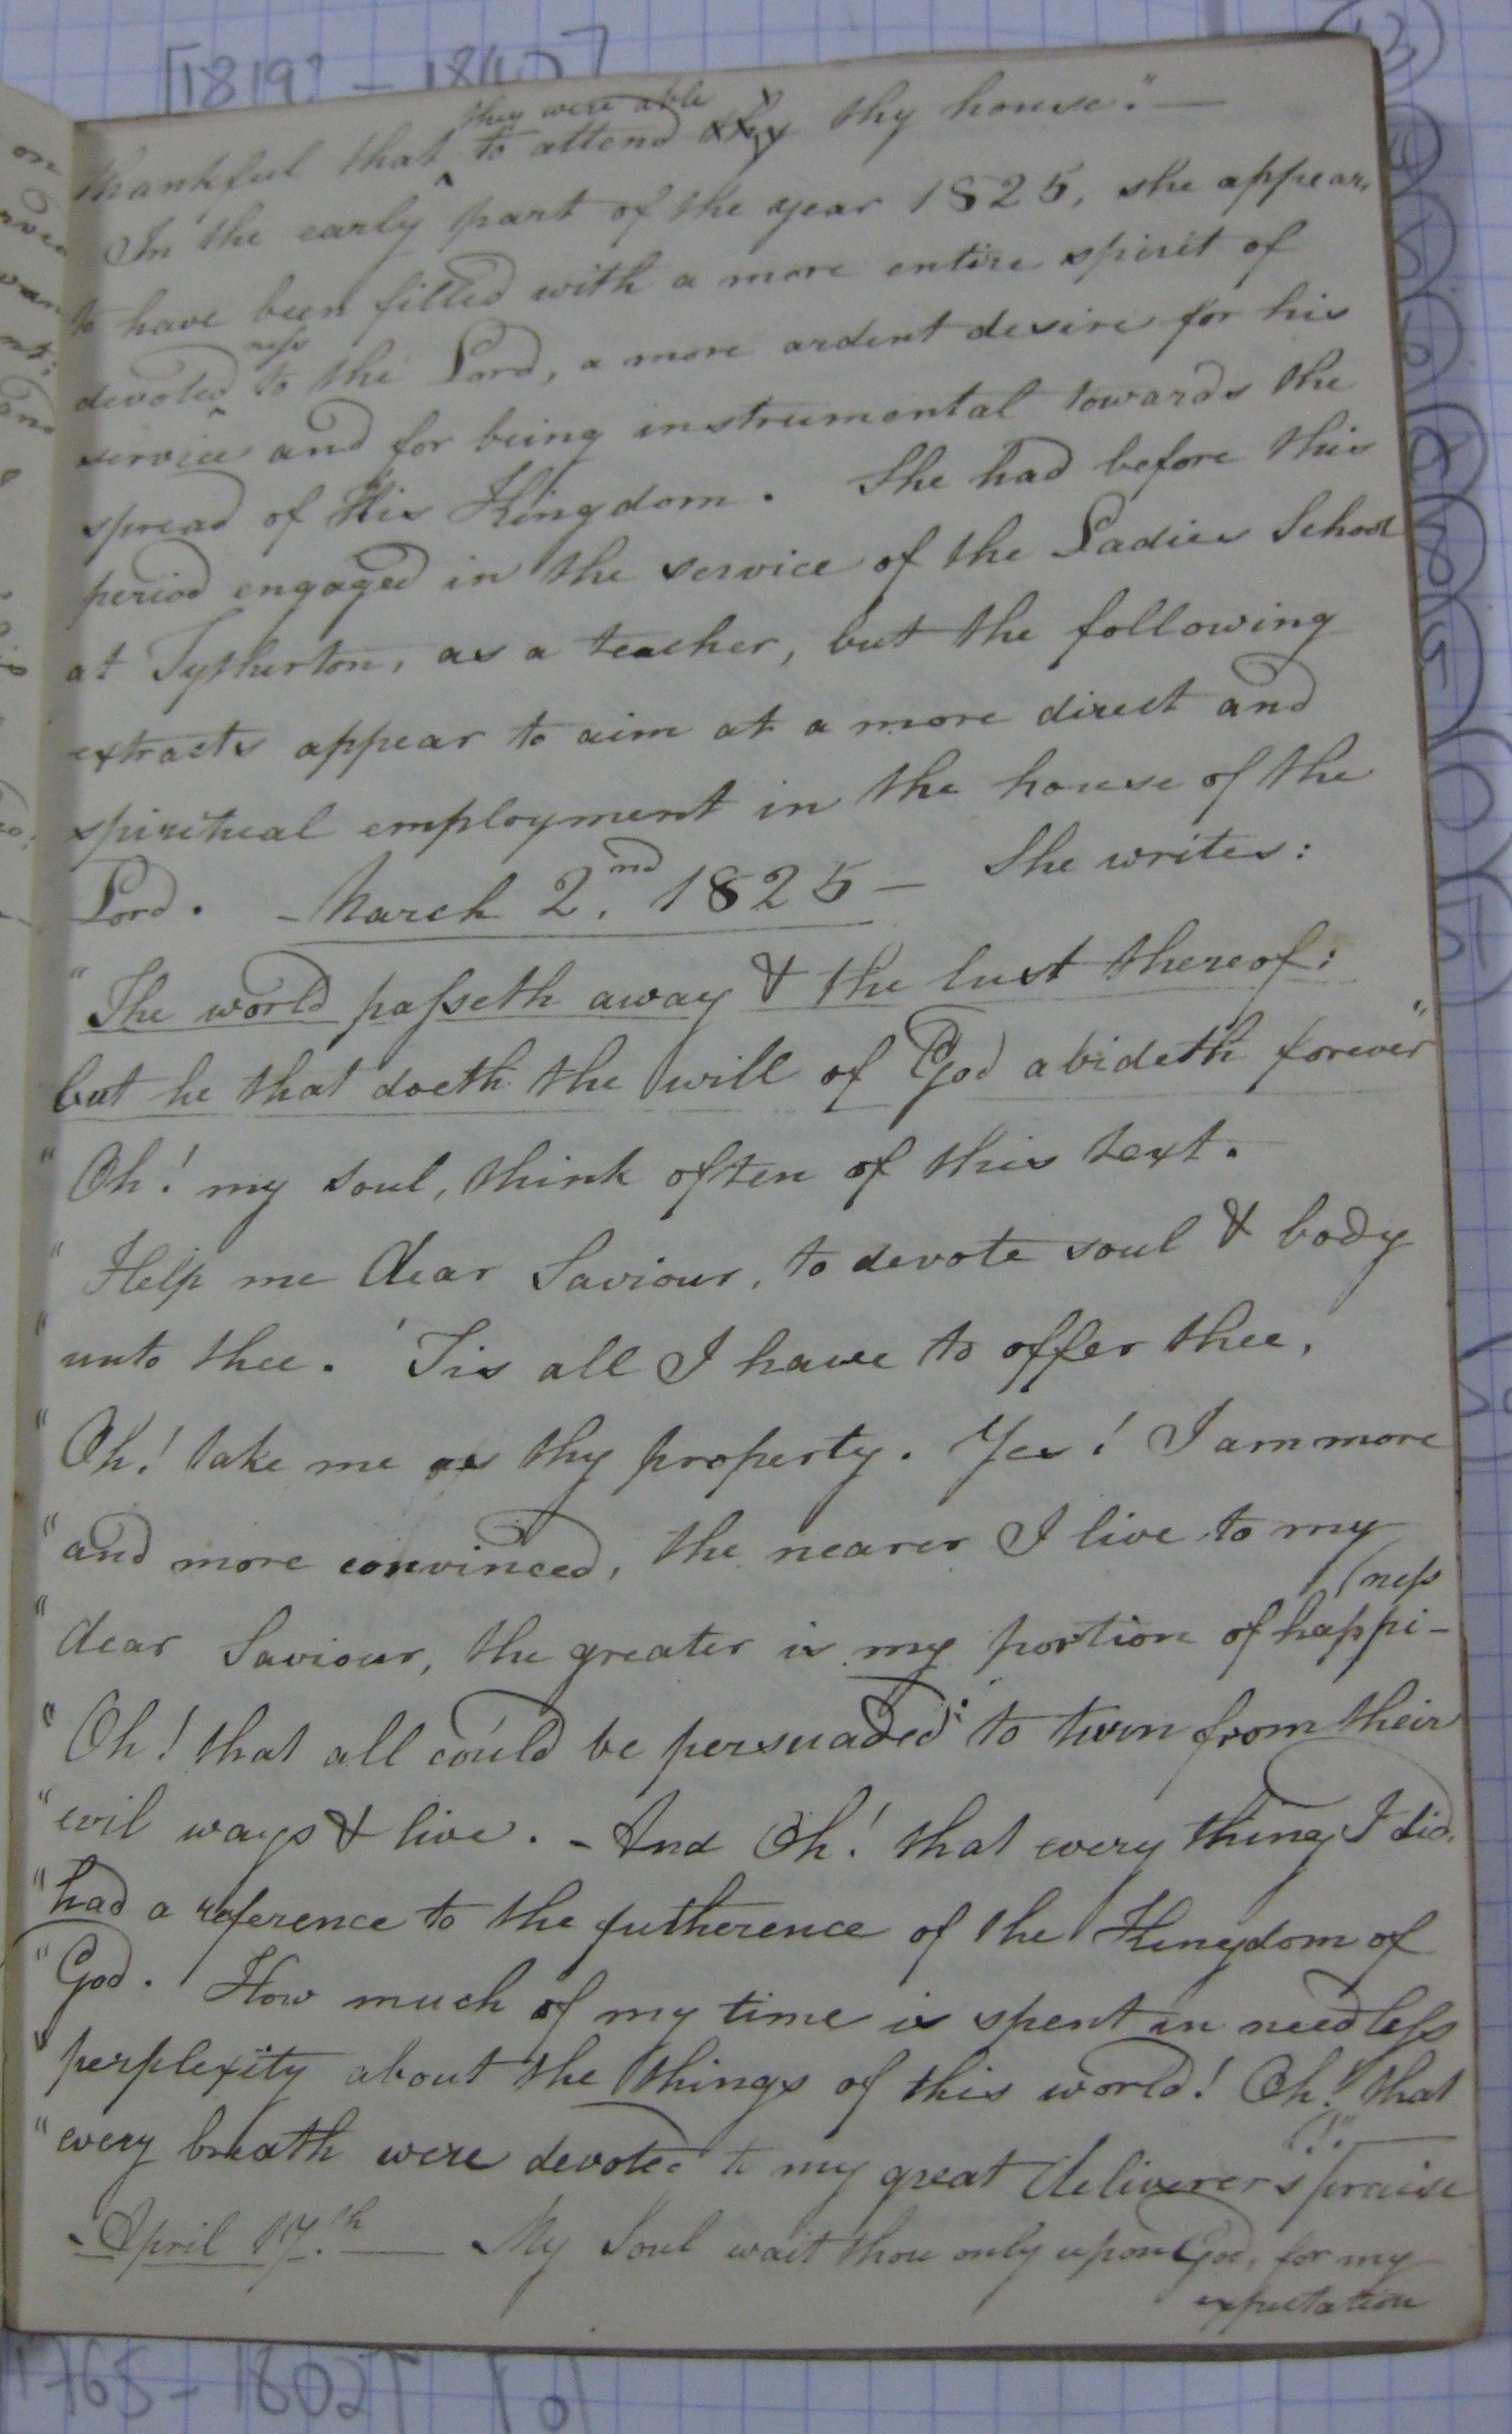 [1819? - 1840]
they were able
thankful that ^ to attend thy thy house." —
In the early part of the year 1825, she appears
to have been filled with a more entire spirit of
ness
devoted ^ to the Lord, a more ardent desire for his
service and for being instrumental towards the
spread of His Kingdom. She had before this
period engaged in the service of the Ladies School
at Tytherton, as a teacher, but the following
extracts appear to aim at a more direct and
spiritual employment in the house of the
Lord. - March 2nd. 1825 — She writes:
"The world passeth away & the lust thereof:
but he that doeth the will of God abideth forever"
"Oh! my soul, think often of this text.
"Help me dear Saviour, to devote soul & body
"unto thee. 'Tis all I have to offer thee,
"Oh! take me as thy property. Yes! I am more
"and more convinced, the nearer I live to my
(ness
"dear Saviour, the greater is my portion of happi-
"Oh! that all could be persuaded to turn from their
"evil ways & live. - And Oh! that every thing I did,
"had a reference to the futherence of the Kingdom of
"God. How much of my time is spent in needless
"perplexity about the things of this world! Oh! that
"every breath were devoted to my great deliverer's praise
(!". —
- April 17.th — My Soul wait thou only upon God, for my
expectation
1765 - 1802